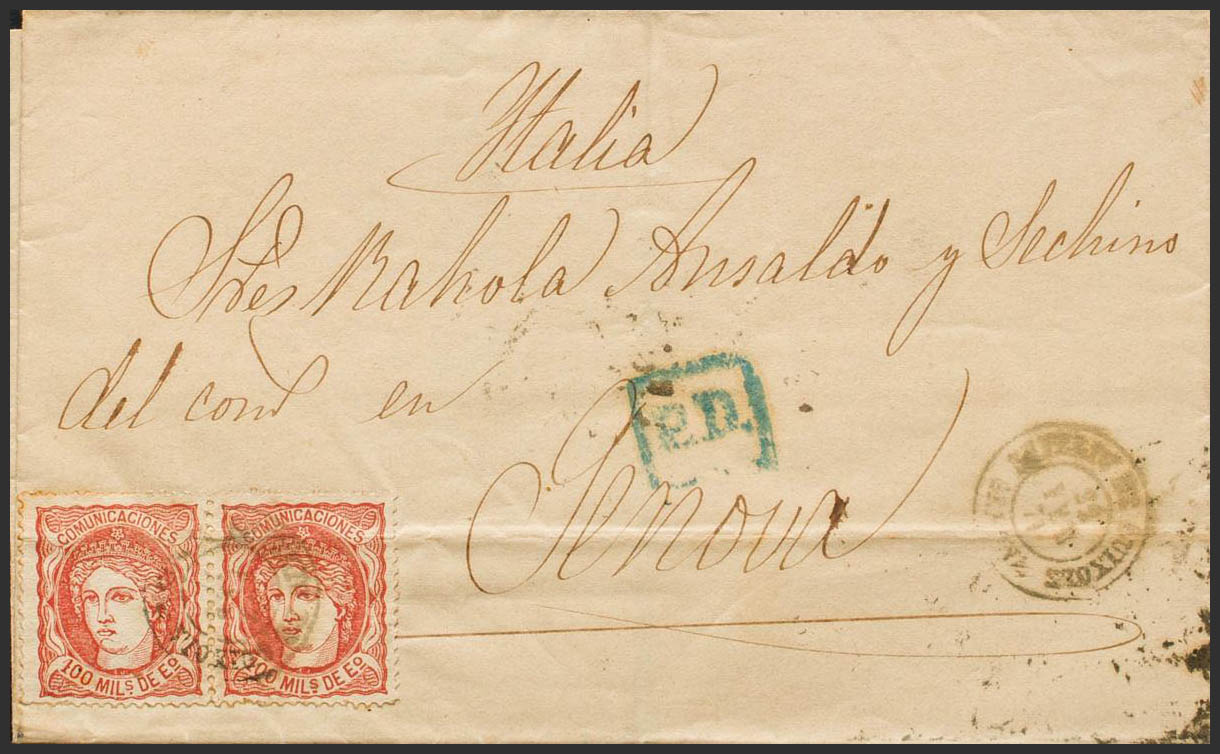 Italia
Sres Rahola Ansaldo y Sechino
del com en
P.D.
Genova
COMUNICACIONES COMUNICACIONES
100 MILS DE EO. 100 MILS DE EO.